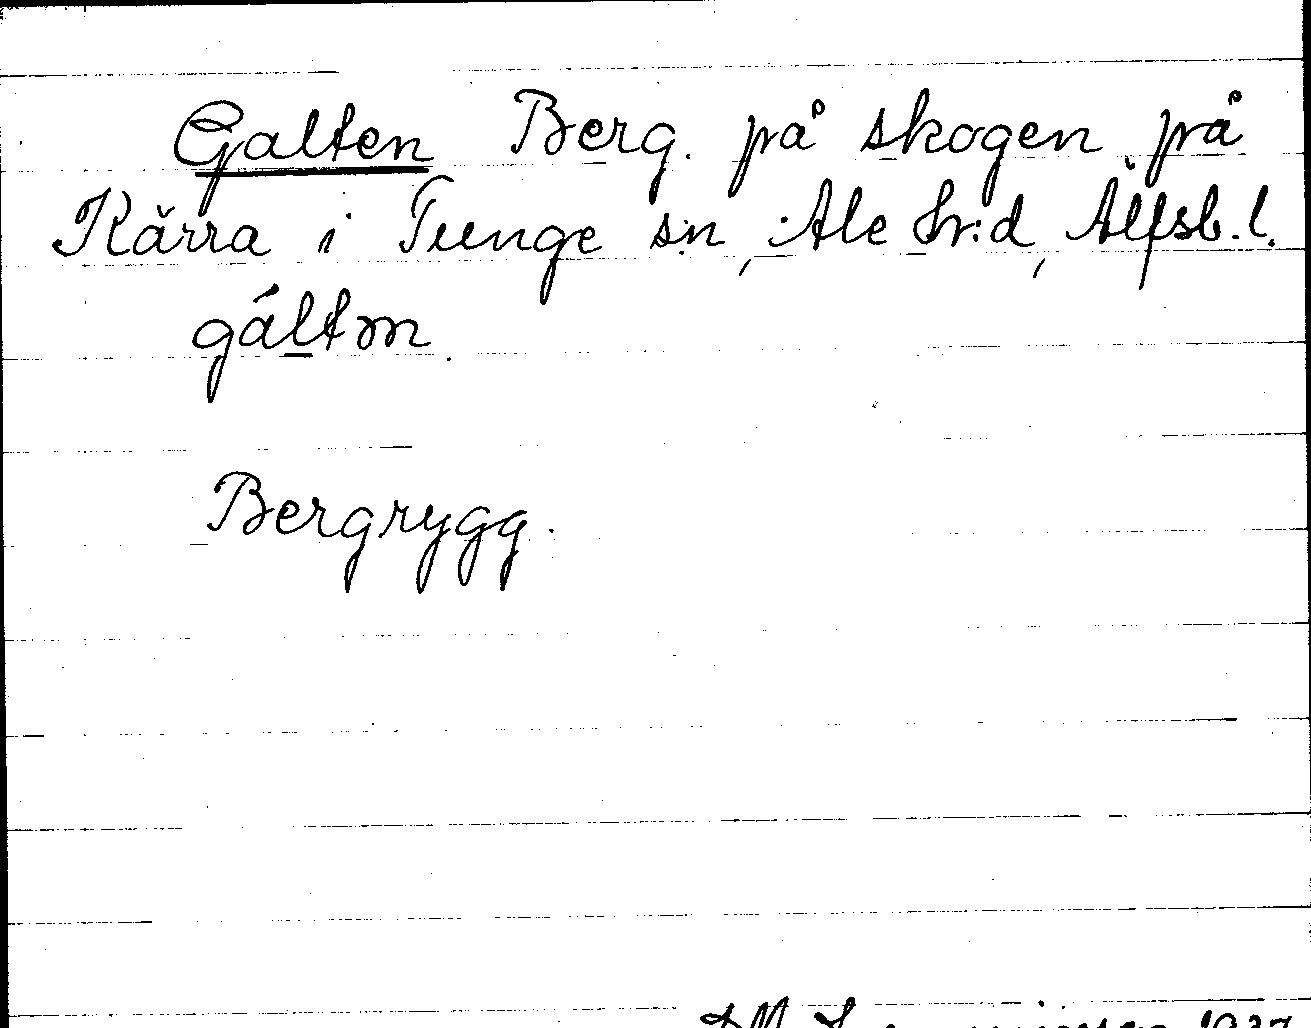 Galten Berg. på skogen på
Kärra i Tunge sn, Ale Hr:d, Älfsb. l.
gáltɷn
Bergrygg.
1937